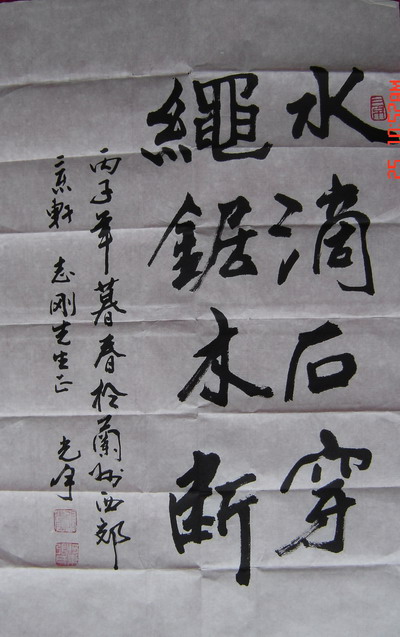 水滴石穿
繩鋸木断
丙子年暮春於蘭州西郊
三泉軒 志刚先生正
光宇